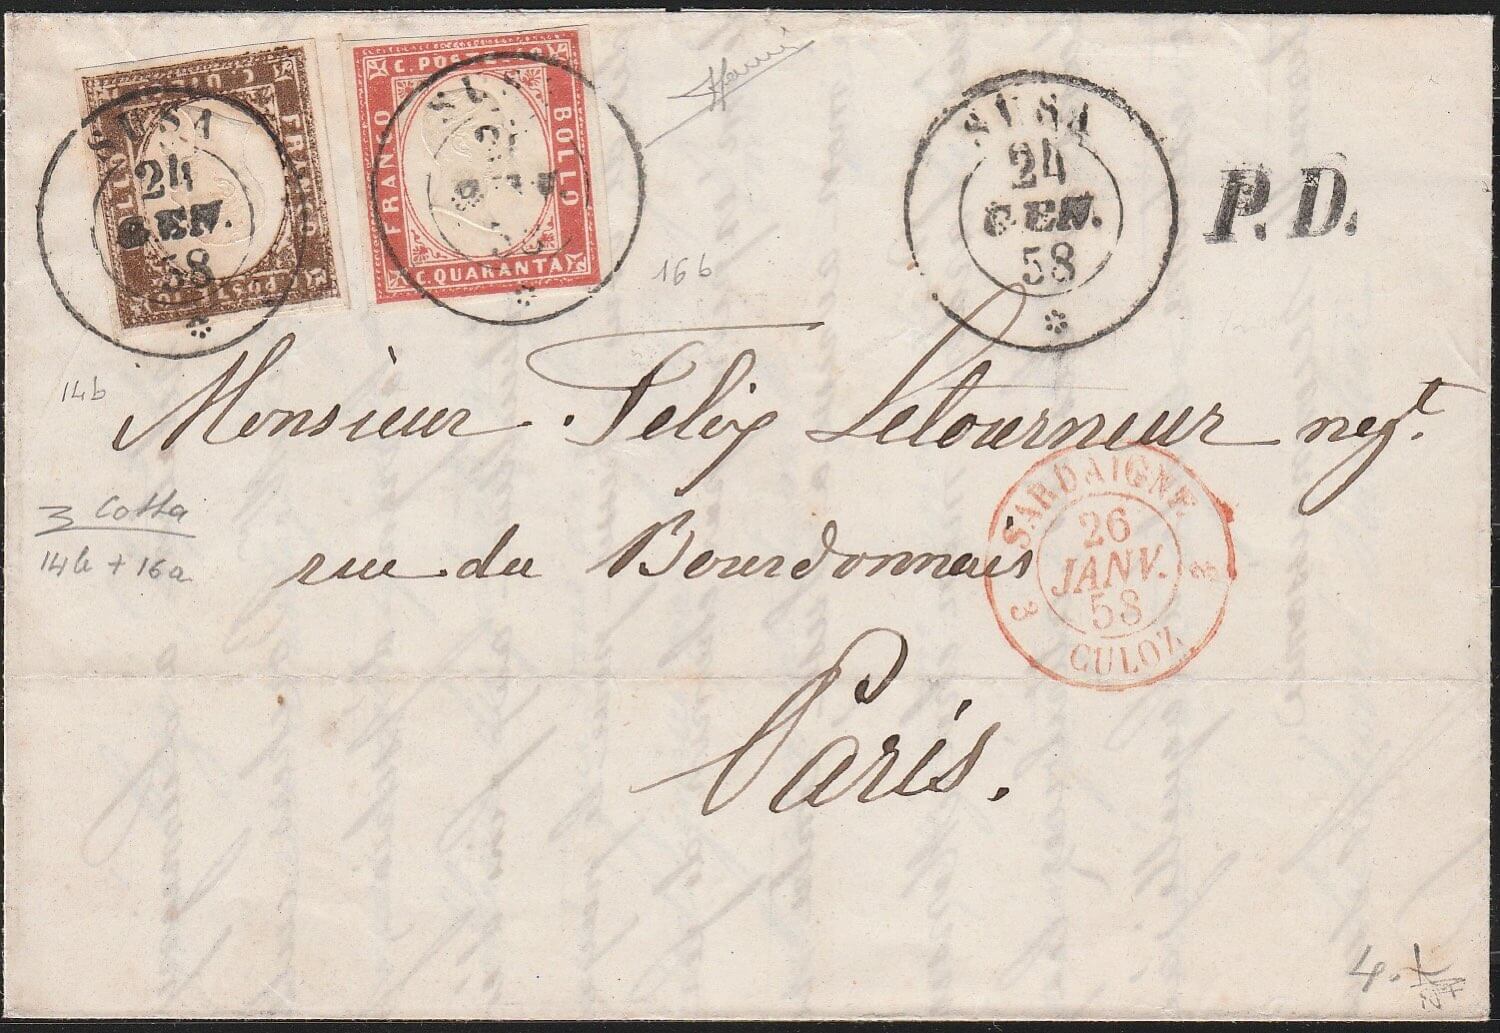 C. DIECI
FRANCO
BOLLO
C. POSTE 10
C. POSTE 40
FRANCO
BOLLO
C. QUARANTA
SUSA
24
GEN.
58
SUSA
24
GEN.
58
SUSA
24
GEN.
58
P.D.
14 b
16 b
Monsieur Felix Letourneur negt.
3 Cotta
14b + 16a
rue du Bourdonnais
SARDAIGNE
26
JANV.
58
3 CULOZ 3
Paris.
4.